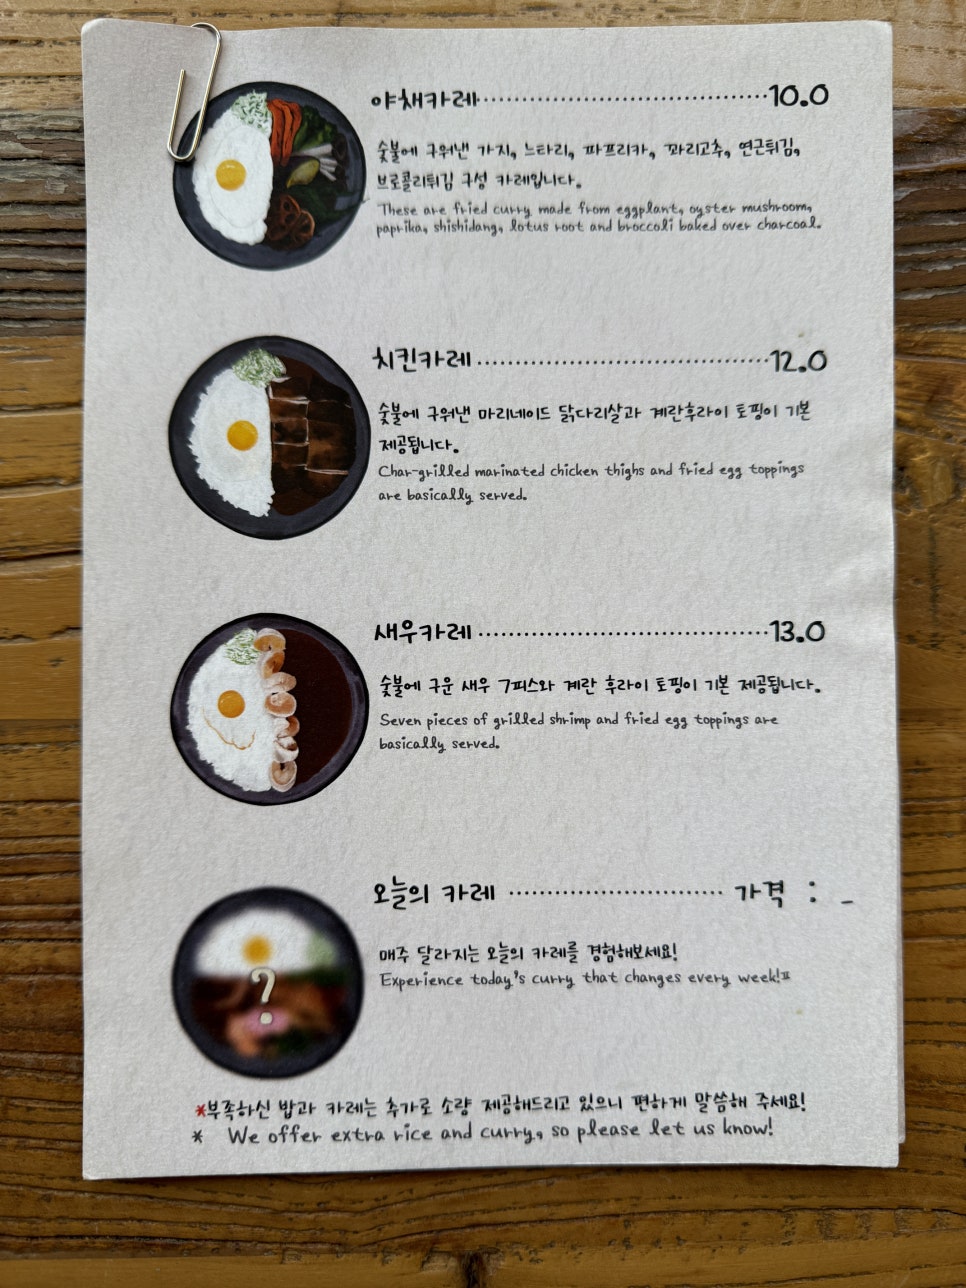 야채카레 10.0
숯불에 구워낸 가지, 느타리, 파프리카, 꽈리고추, 연근튀김,
브로콜리튀김 구성 카레입니다.
These are fried curry made from eggplant, oyster mushroom,
paprika, shishidang, lotus root and broccoli baked over charcoal.
치킨카레 12.0
숯불에 구워낸 마리네이드 닭다리살과 계란후라이 토핑이 기본
제공됩니다.
Char-grilled marinated chicken thighs and fried egg toppings
are basically served.
새우카레 13.0
숯불에 구운 새우 7피스와 계란 후라이 토핑이 기본 제공됩니다.
Seven pieces of grilled shrimp and fried egg toppings are
basically served.
오늘의 카레 가격 : _
?
매주 달라지는 오늘의 카레를 경험해보세요!
Experience today's curry that changes every week!
*부족하신 밥과 카레는 추가로 소량 제공해드리고 있으니 편하게 말씀해 주세요!
* We offer extra rice and curry, so please let us know!